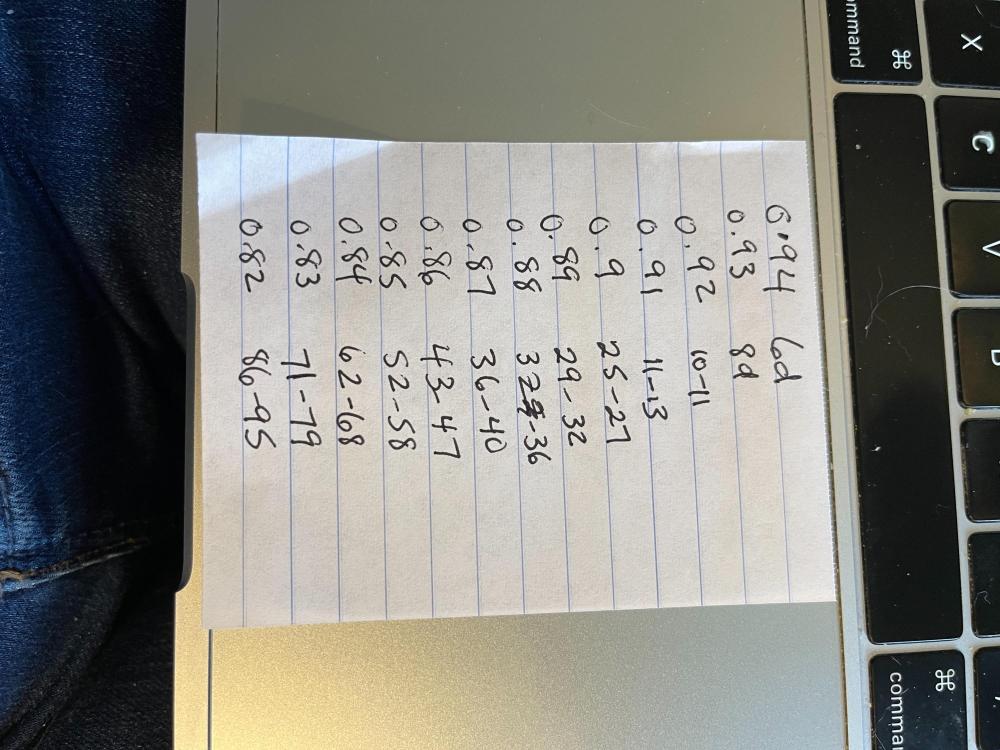 0.94 6d
0.93 8d
0.92 10-11
0.91 11-13
0.9 25-27
0.89 29-32
0.88 32-36
0.87 36-40
0.86 43-47
0.85 52-58
0.84 62-68
0.83 71-79
0.82 86-95
X
C
V
command
⌘
⌘